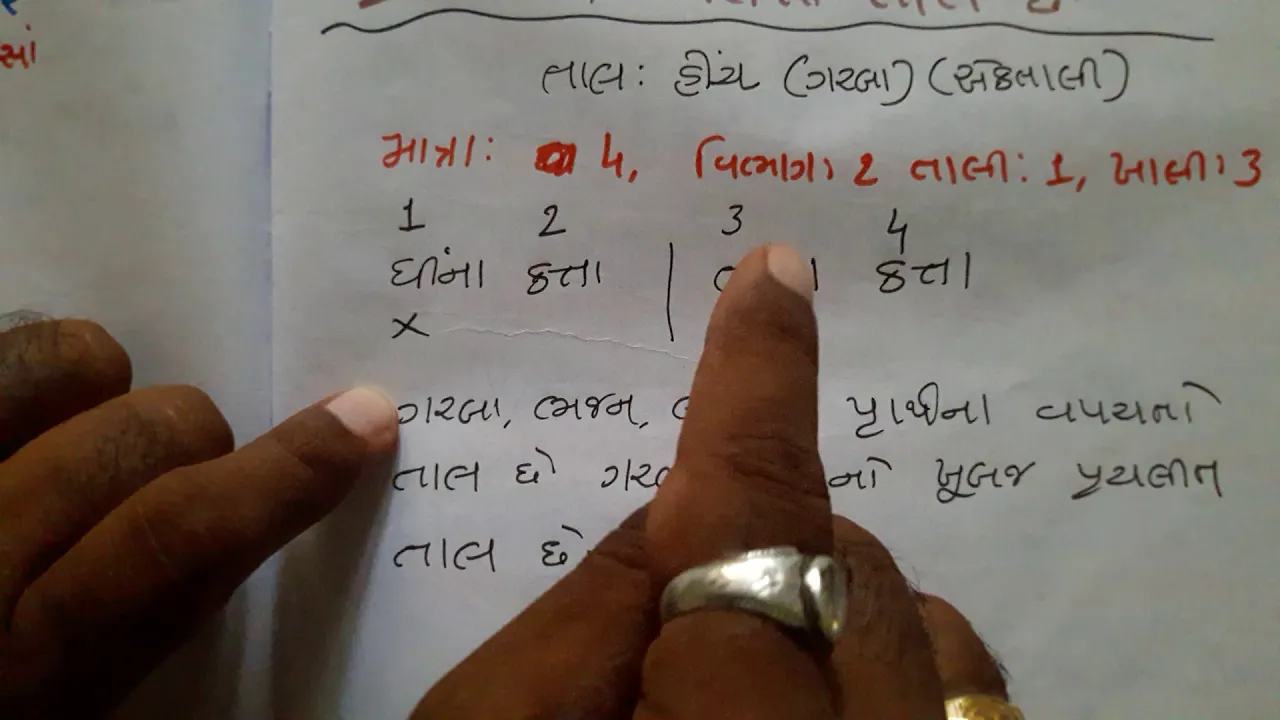 સાં
તાલ: હીંચ (ગરબા) (એકતાલી)
માત્રા: 4, વિભાગ: 2 તાલી: 1, ખાલી: 3
1 2 3 4
ધીંના કત્તા | કત્તા
×
ગરબા, ભજન, પ્રાર્થના વપચતો
તાલ છે નો ખૂબજ પ્રચલીત
તાલ છે